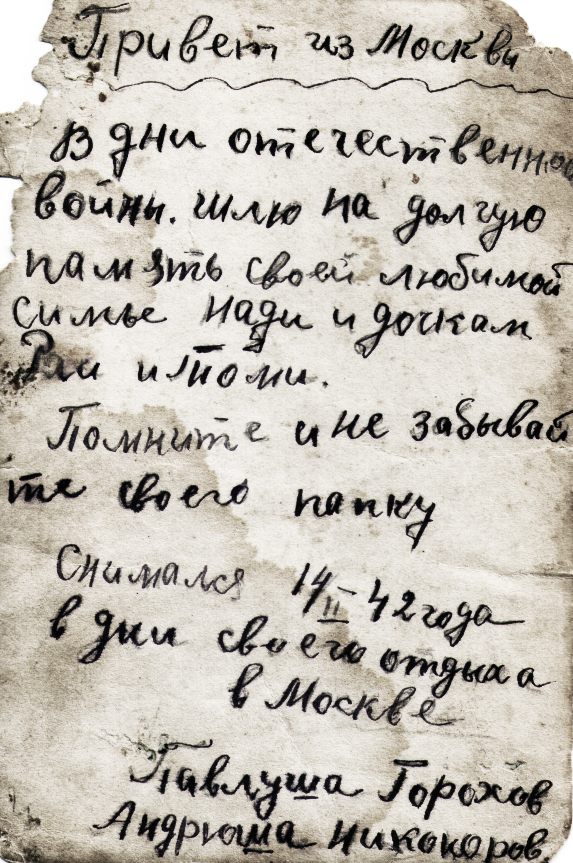 Привет из Москвы
В дни отечественной
войны. шлю на долгую
память своей любимой
симье Нади и дочкам
Раи и Томи.
Помните и не забывай
те своего папку
Снимался 14/II-42 года
в дни своего отдыха
в Москве
Павлуша Горохов
Андрюша Никоноров